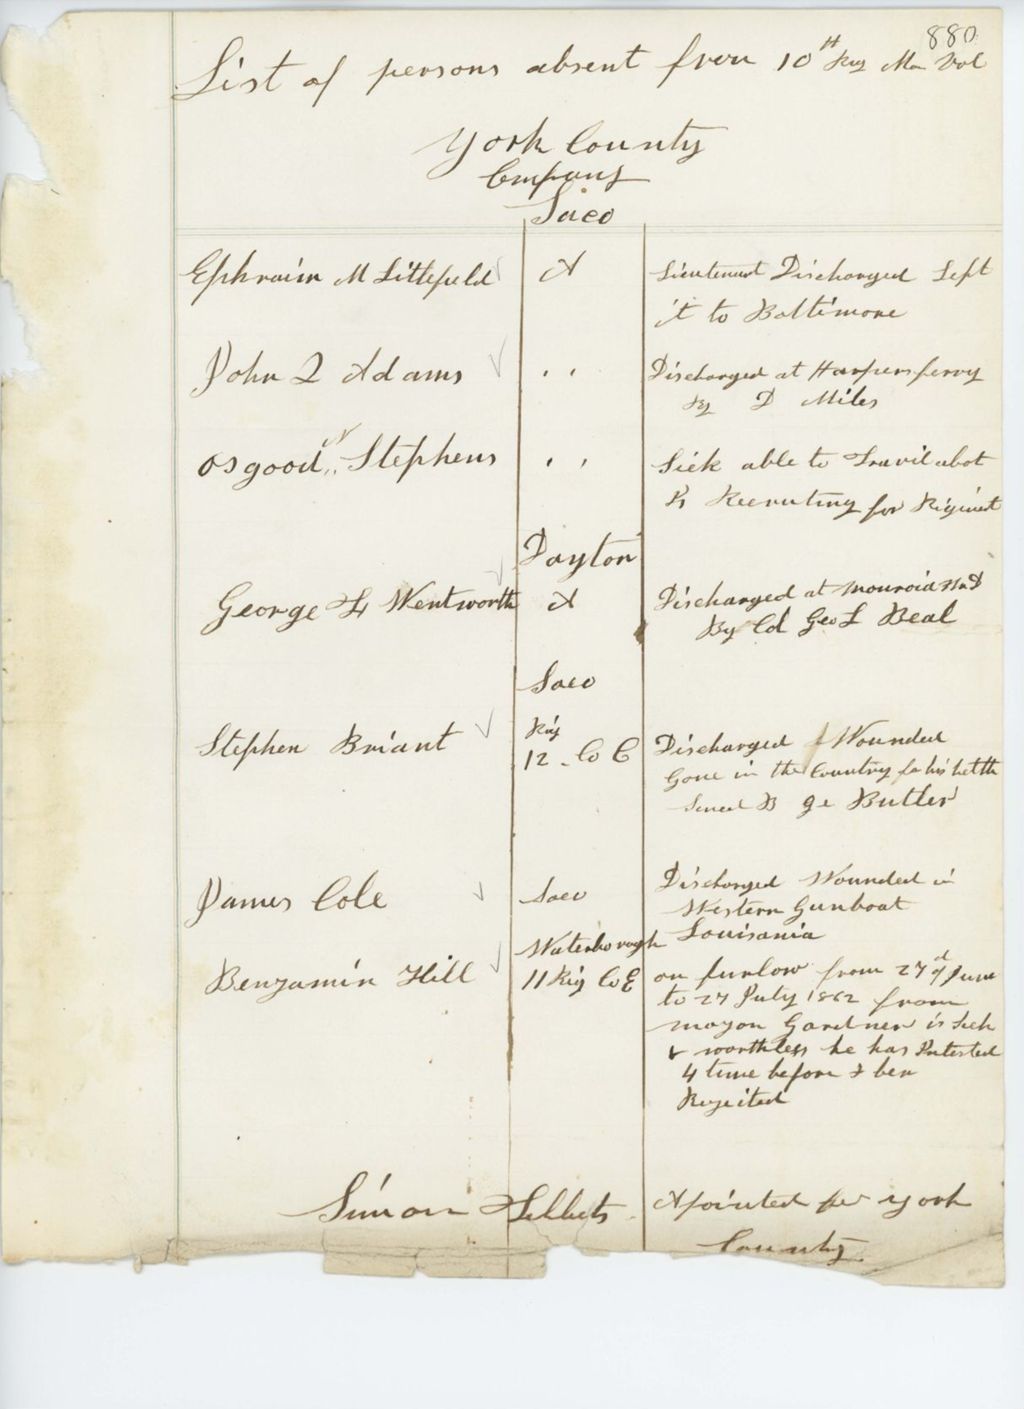 880
List of persons absent from 10th Reg Me Vol
York County
Company
Saco
Ephraim M Littlefield A Lieutenant Discharged Left
it to Baltimore
John Q Adams " Discharged at Harpersferry
By D Miles
Osgood Stephens " Sick able to Travil abot
Is Recruting for Rigiment
Dayton
George Wentworth A Discharged at
By Col Geo L Beal
Saco
Stephen Briant Rig
12 - Co C Discharged & Wounded
Gone in the Country for his helth
Butler
James Cole Saco Discharged Wounded in
Western Gunboat
Louisania
Benjamin Hill Waterborough
11 Rig Co E on furlow from 27 of June
to 27 July 1862 from
mayor Gardner is Sick
& worthless he has
4 time before & ben
Rejeited
Simon Apointed for York
County